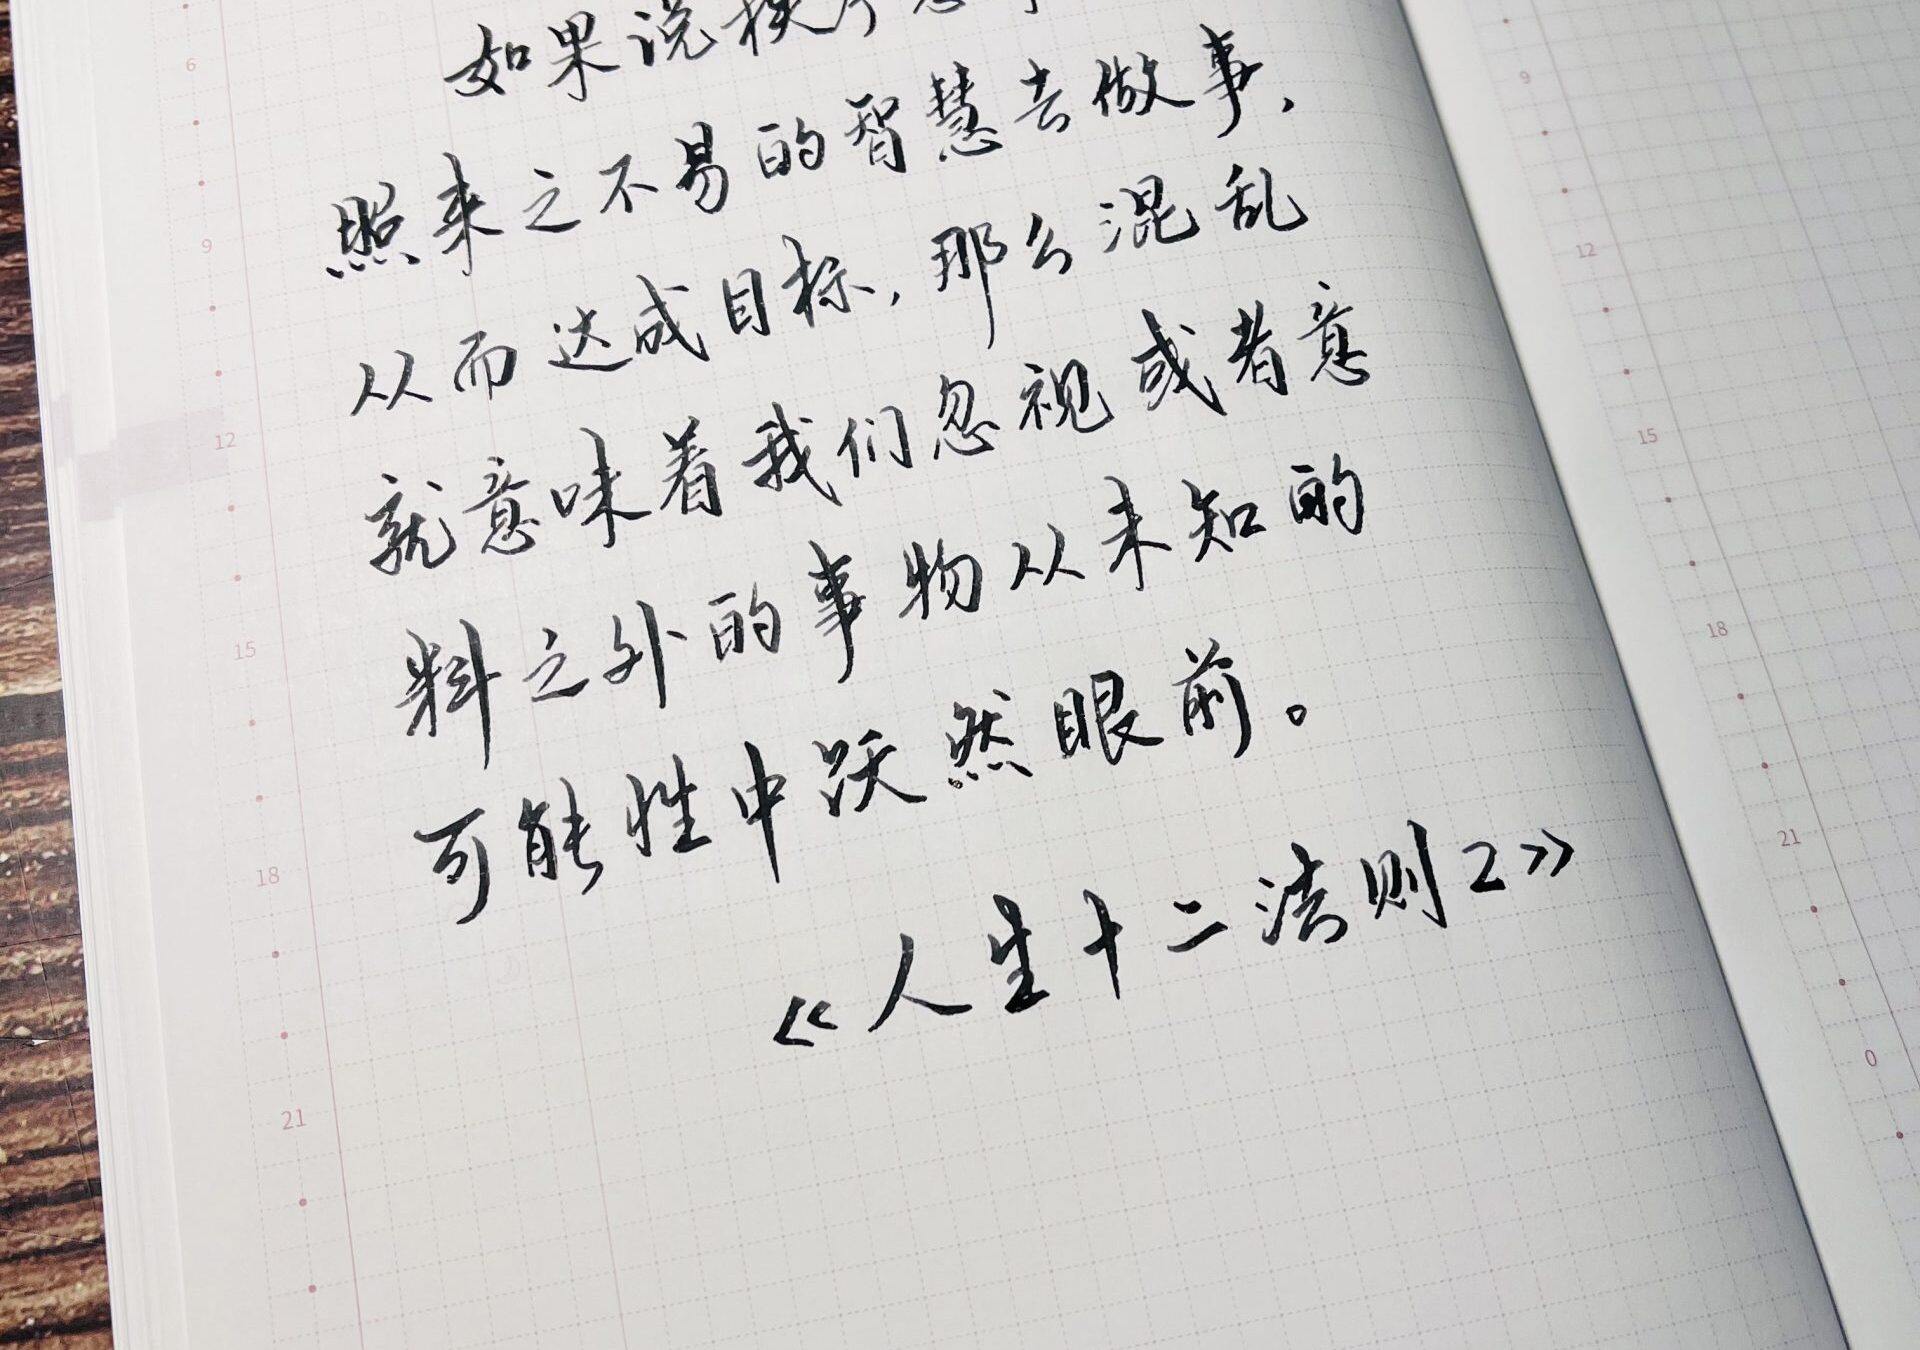 如果说秩序意
照来之不易的智慧去做事，
从而达成目标，那么混乱
就意味着我们忽视或者意
料之外的事物从未知的
可能性中跃然眼前。
《人生十二法则2》
6
9
12
15
18
21
9
12
15
18
21
0